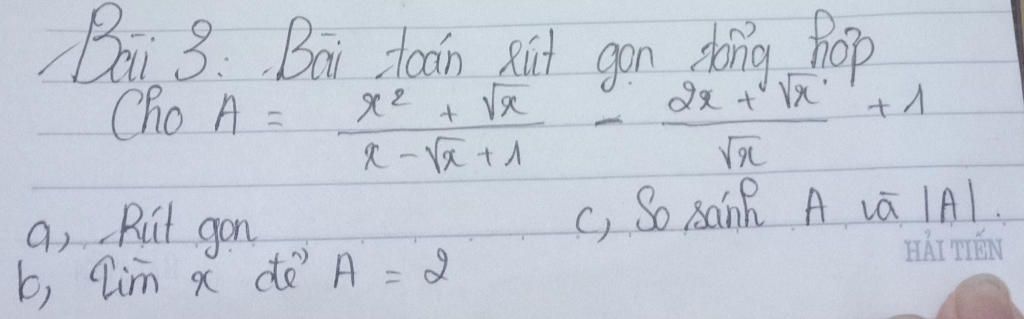 Bài 3: Bài toán rút gọn tổng hợp
Cho A = \frac{x² + √x}{x - √x + 1} - \frac{2x + √x}{√x} + 1
a, Rút gọn
c, So sánh A và |A|.
b, Tìm x để A = 2
HẢI TIẾN